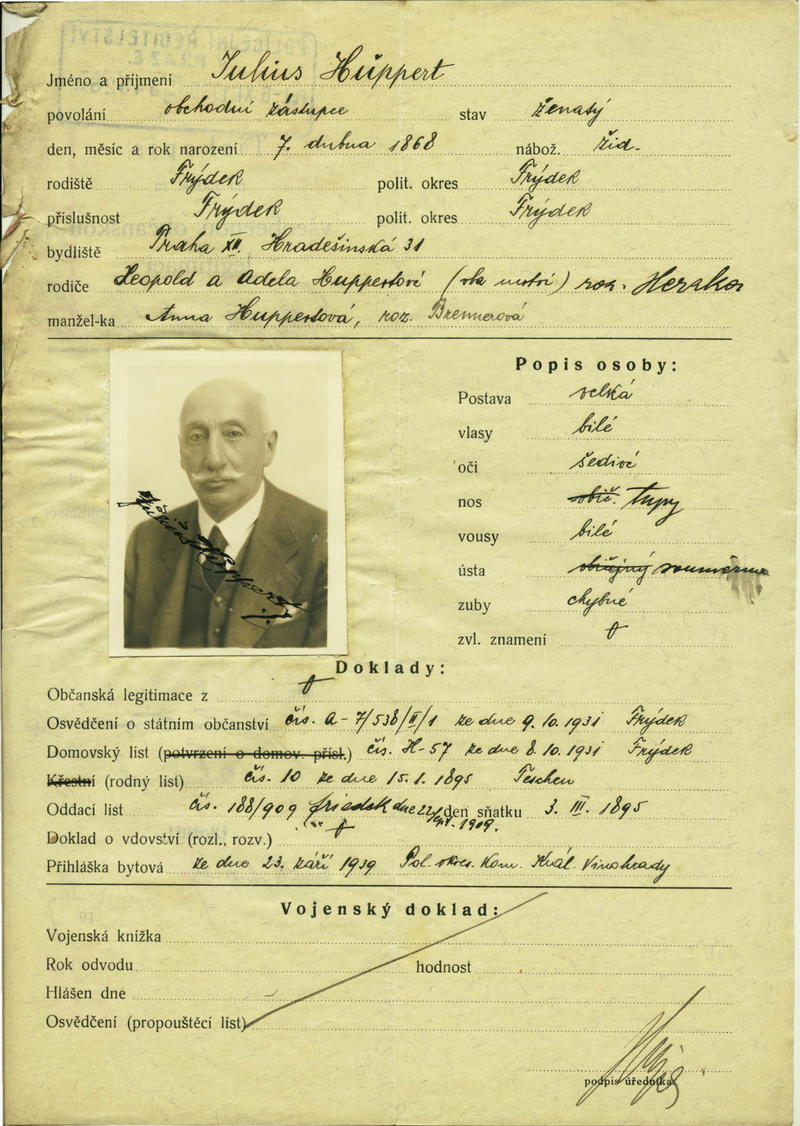 POLICEJNÍ ŘEDITELSTVÍ
Jméno a příjmení Julius Huppert
povolání obchodní zástupce stav ženatý
den, měsíc a rok narození 7. dubna 1868 nábož. žid.
rodiště Frýdek polit. okres Frýdek
příslušnost Frýdek polit. okres Frýdek
bydliště Praha XII Hradešínská 31
rodiče Leopold a Adela Huppertovi (oba mrtvi) roz.
manžel-ka Anna Huppertová, roz. Brennerová
Popis osoby:
Postava velká
vlasy bílé
oči šedivé
nos obič. tupý
vousy bílé
ústa obyčejný souměrné
zuby chybné
zvl. znamení
Julius Huppert
Doklady:
Občanská legitimace z
Osvědčení o státním občanství čís. A-7/538/II/1 ze dne 9.10.1931 Frýdek
Domovský list (potvrzení o domov. přísl.) čís. H-57 ze dne 8.10.1931 Frýdek
Křestní (rodný list) čís. 10 ze dne 15.1.1895 Teschen
Oddací list čís. 188/909 Friedek dne 22/ den sňatku 3. III. 1895
1909.
Doklad o vdovství (rozl., rozv.)
Přihláška bytová ze dne 23. září 1939 Pol. okres. Kom. Král. Vinohrady
Vojenský doklad:
Vojenská knížka
Rok odvodu hodnost
Hlášen dne
Osvědčení (propouštěcí list)
podpis úředníka